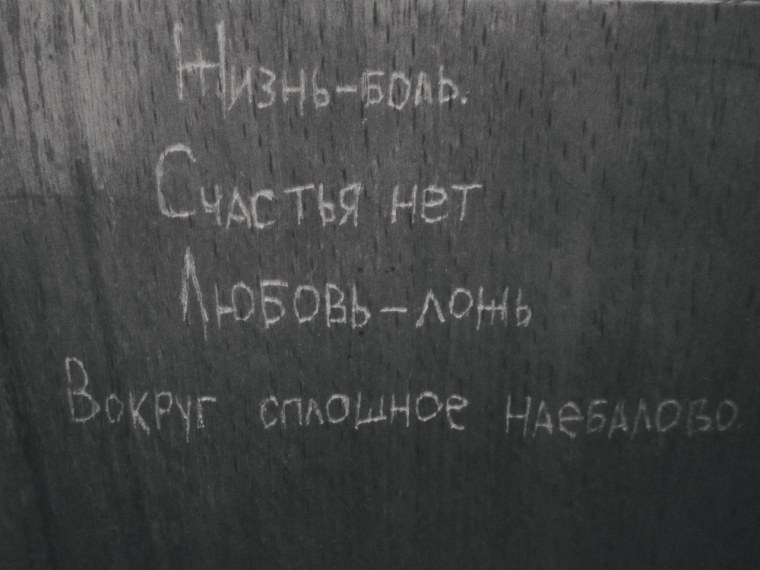 Жизнь-боль.
Счастья нет
Любовь-ложь
Вокруг сплошное наебалово.